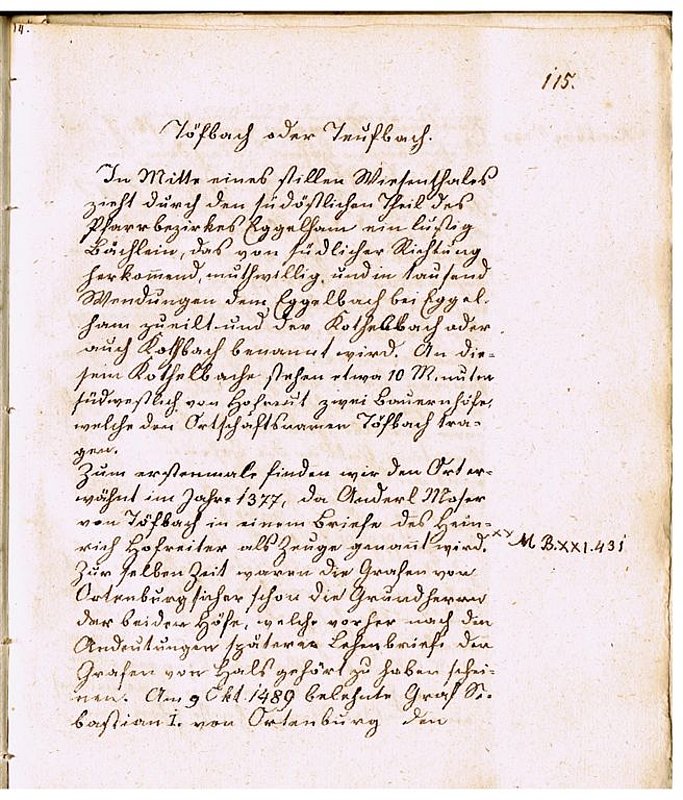 14.
115.
Töfbach oder Teufbach.
In Mitte eines stillen Wiesenthales
zieht durch den südöstlichen Theil des
Pfarrbezirkes Eggelham ein lustig
Bächlein, das von südlicher Richtung
herkommend, muthwillig und in tausend
Wendungen dem Eggelbach bei Eggel-
ham zueilt und der Kothelbach oder
auch Kothbach benannt wird. An die-
sem Kothelbache stehen etwa 10 Minuten
südwestlich von Hofreut zwei Bauernhöfe,
welche den Ortschaftsnamen Töfbach tra-
gen.
Zum erstenmale finden wir den Ort er-
wähnt im Jahre 1377, da Anderl Moser
von Töfbach in einem Briefe des Hein-
rich Hofreiter als Zeuge genannt wird. xx M B. XXI. 431
Zur selben Zeit waren die Grafen von
Ortenburg sicher schon die Grundherrn
der beiden Höfe, welche vorher nach den
Andeutungen späterer Lehenbriefe den
Grafen von Hals gehört zu haben schei-
nen. Am 9 Okt. 1489 belehnte Graf Se-
bastian I. von Ortenburg den